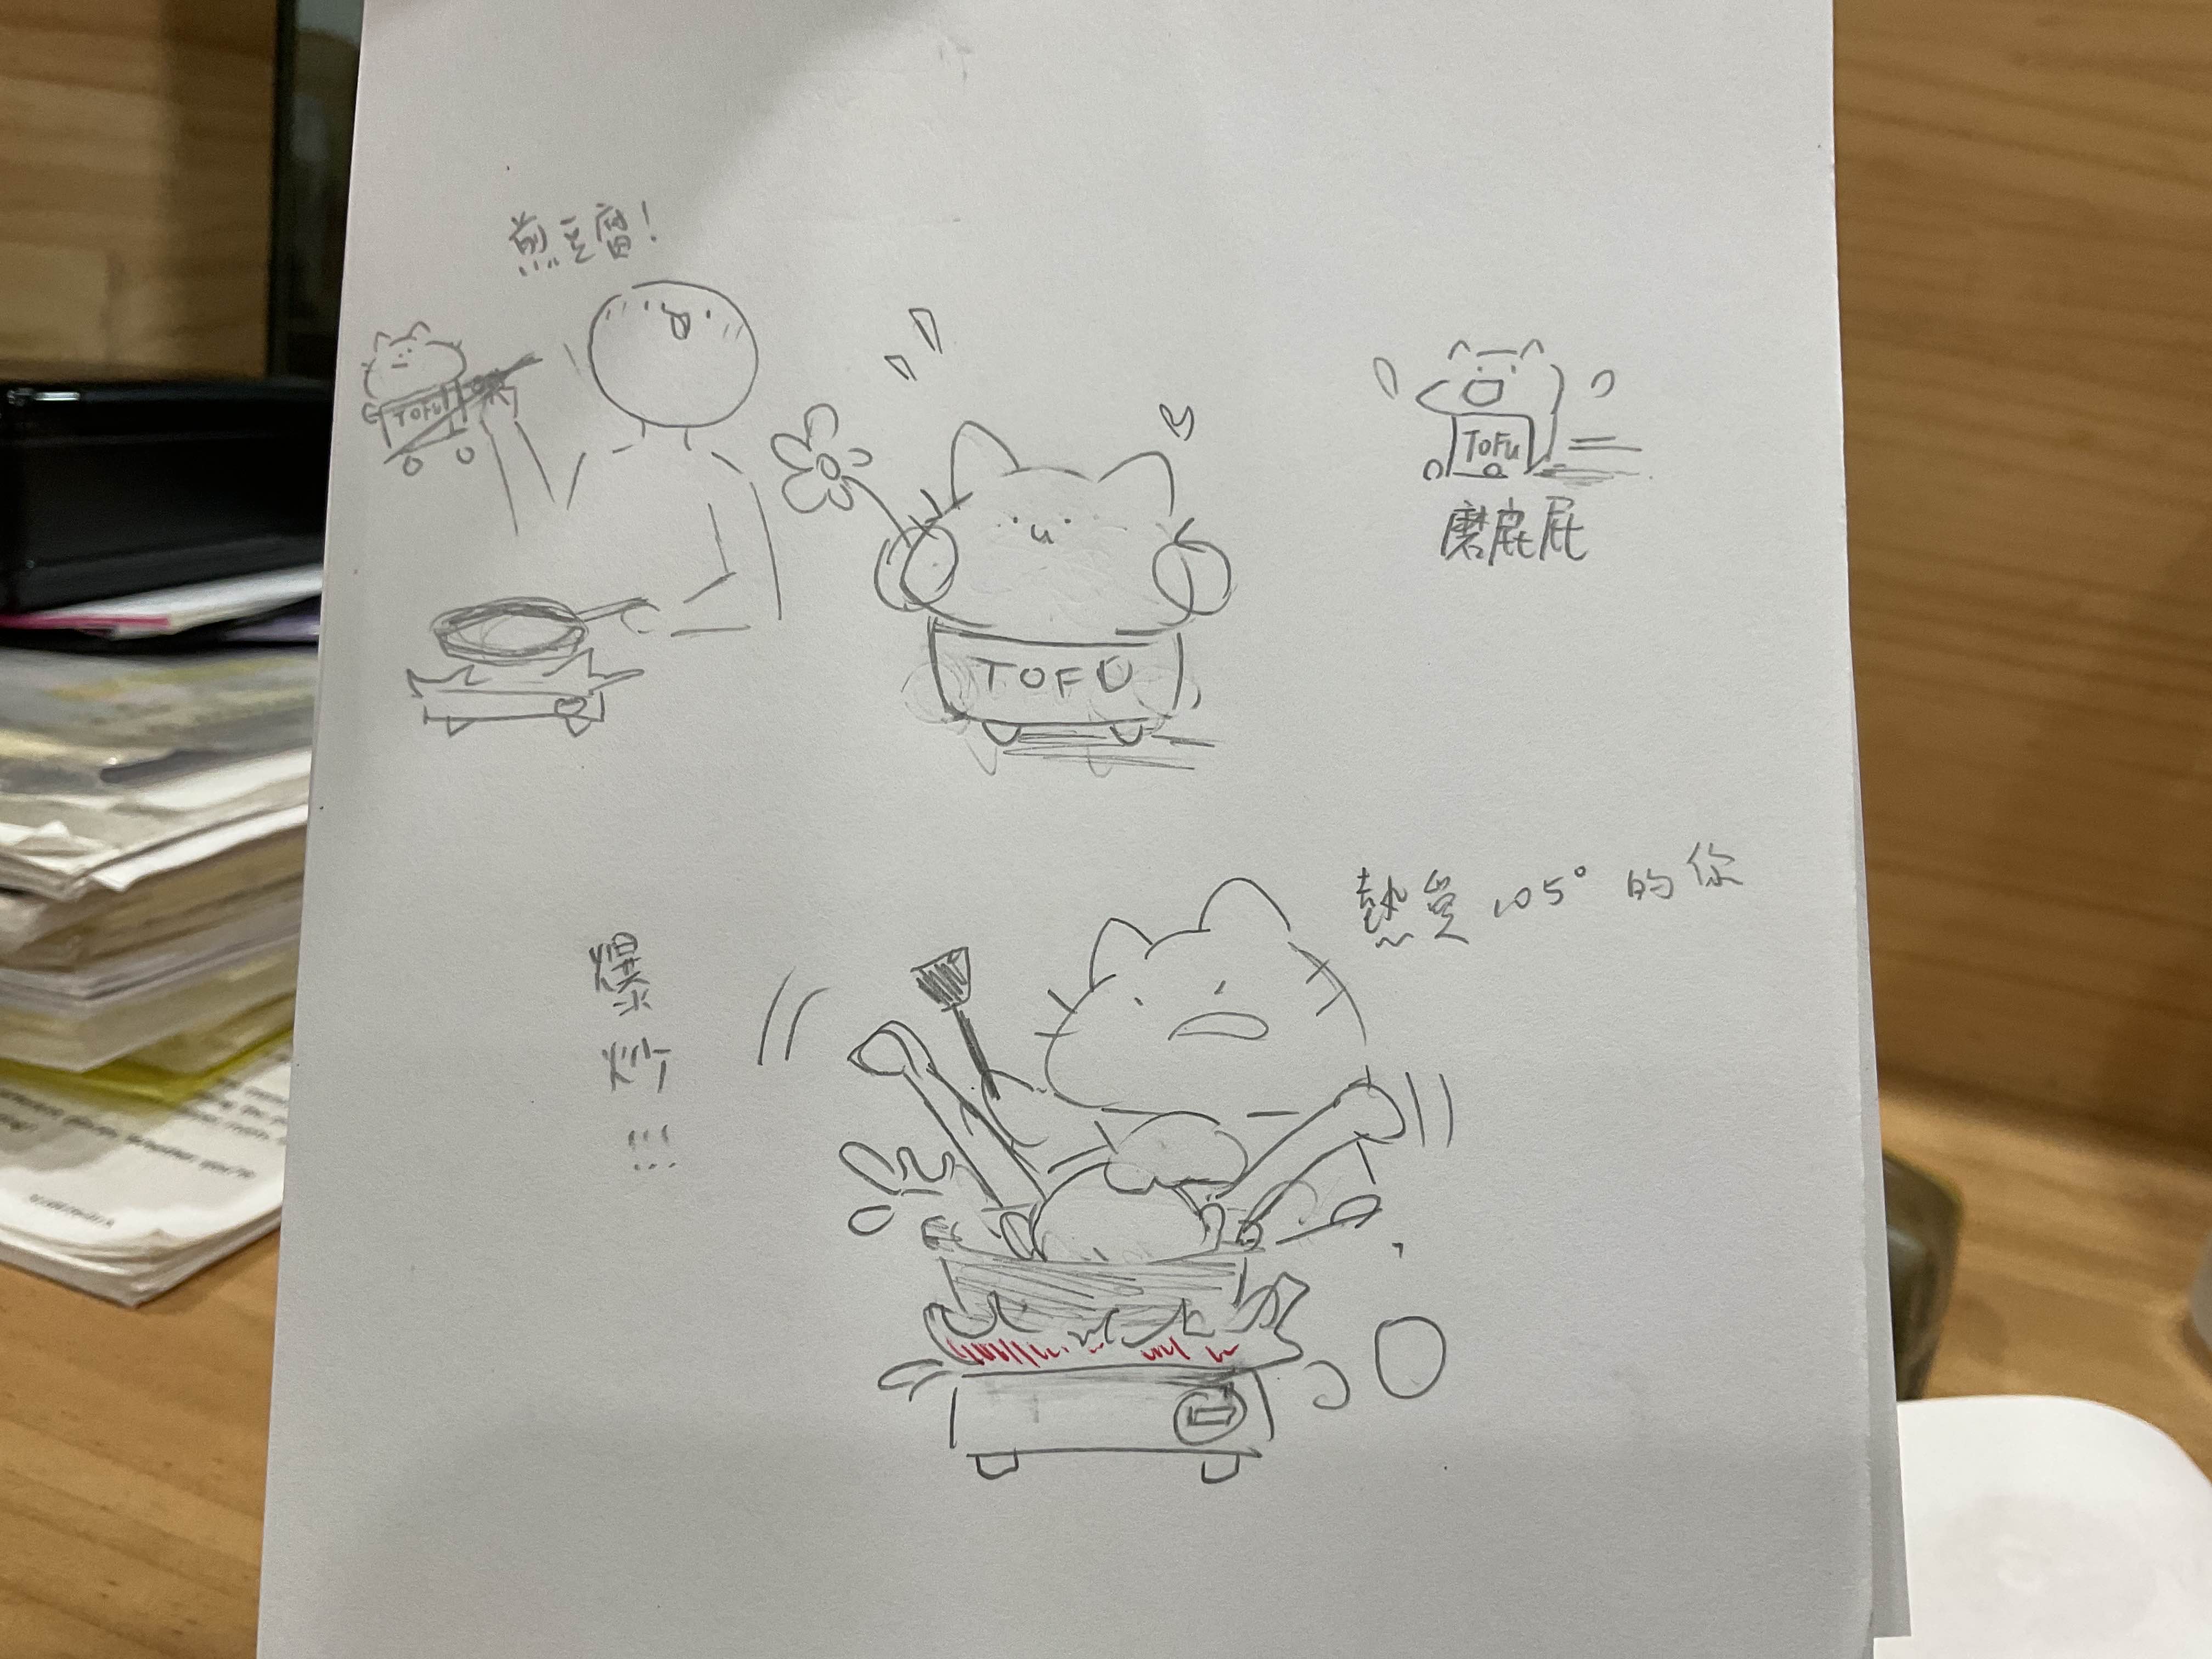 煎豆腐!
TOFU
TOFU
TOFU
磨屁屁
熱愛105°的你
爆
炒
!!!